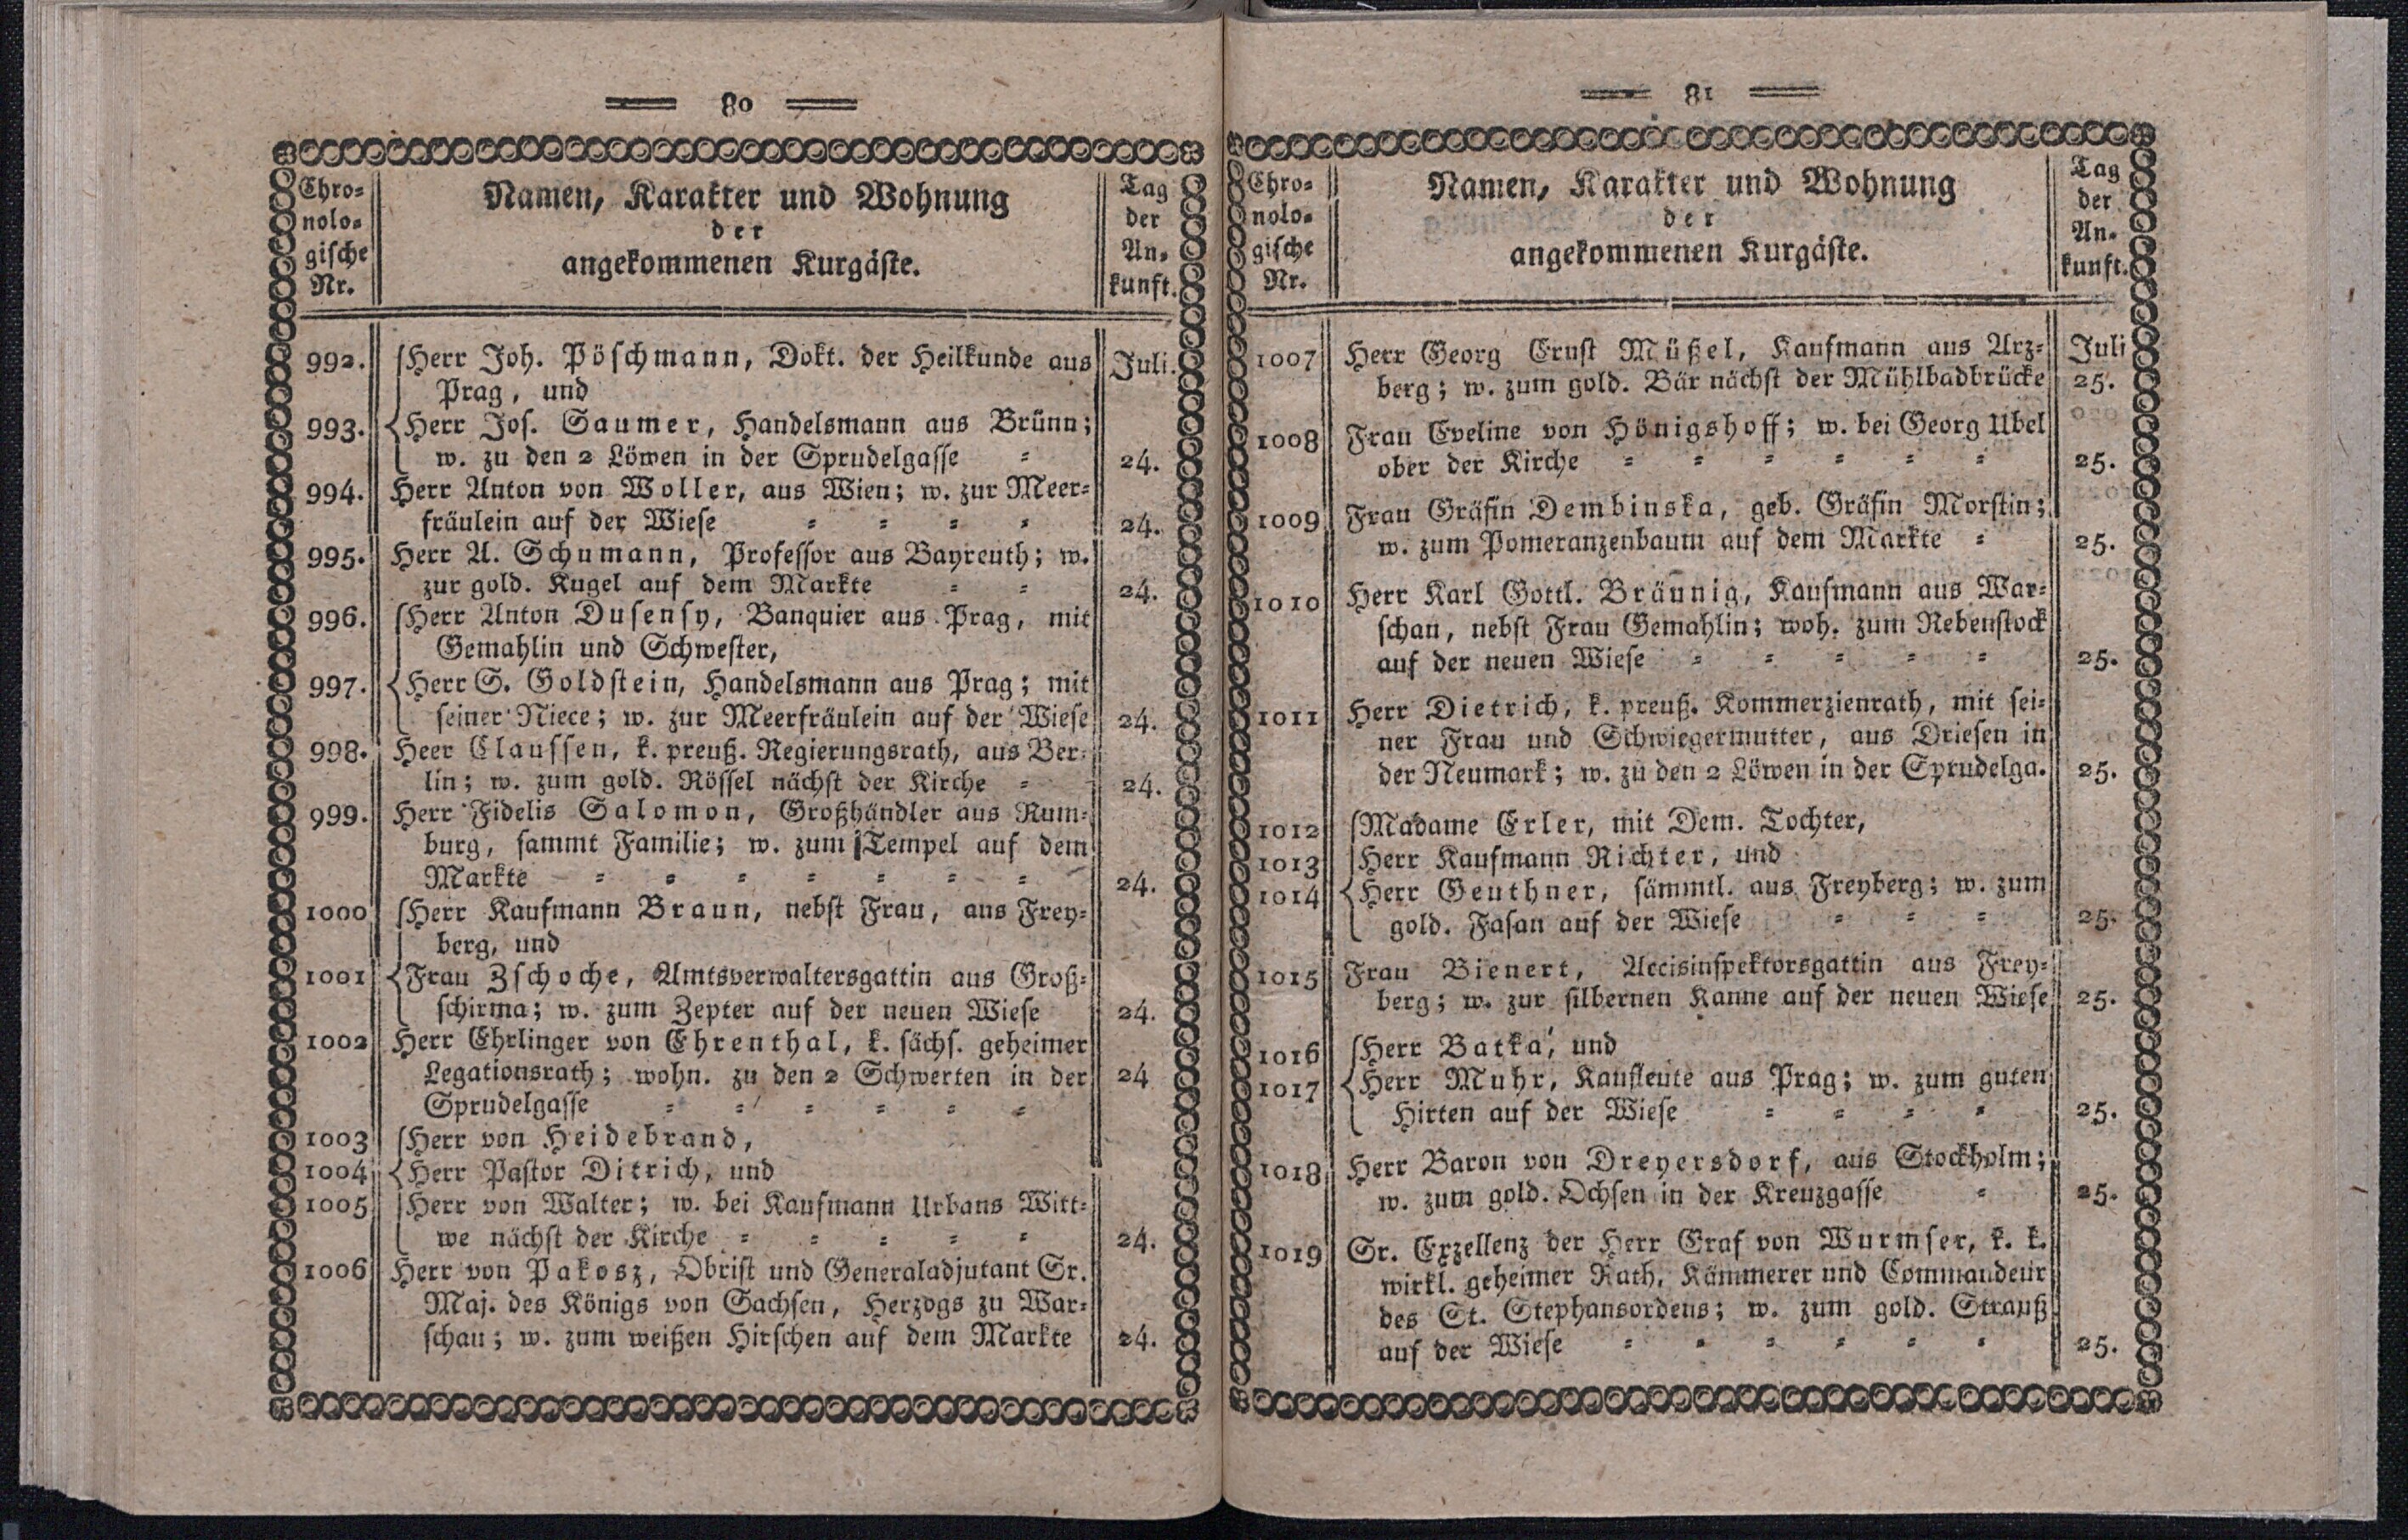 80
Chro-
nolo-
gische
Nr.
Namen, Karakter und Wohnung
der
angekommenen Kurgäste.
Tag
der
An-
kunft.
992. Herr Joh. Pöschmann, Dokt. der Heilkunde aus Juli.
Prag, und
993. Herr Jos. Saumer, Handelsmann aus Brünn;
w. zu den 2 Löwen in der Sprudelgasse = 24.
994. Herr Anton von Woller, aus Wien; w. zur Meer=
fräulein auf der Wiese = = = = 24.
995. Herr A. Schumann, Professor aus Bayreuth; w.
zur gold. Kugel auf dem Markte = = 24.
996. Herr Anton Dusensy, Banquier aus Prag, mit
Gemahlin und Schwester,
997. Herr S. Goldstein, Handelsmann aus Prag; mit
seiner Niece; w. zur Meerfräulein auf der Wiese 24.
998. Heer Claussen, k. preuß. Regierungsrath, aus Ber=
lin; w. zum gold. Rössel nächst der Kirche = 24.
999. Herr Fidelis Salomon, Großhändler aus Rum=
burg, sammt Familie; w. zum Tempel auf dem
Markte = = = = = = = 24.
1000 Herr Kaufmann Braun, nebst Frau, aus Frey=
berg, und
1001 Frau Zschoche, Amtsverwaltersgattin aus Groß=
schirma; w. zum Zepter auf der neuen Wiese 24.
1002 Herr Ehrlinger von Ehrenthal, k. sächs. geheimer
Legationsrath; wohn. zu den 2 Schwerten in der 24
Sprudelgasse = = = = = =
1003 Herr von Heidebrand,
1004 Herr Pastor Ditrich, und
1005 Herr von Walter; w. bei Kaufmann Urbans Witt=
we nächst der Kirche = = = = = 24.
1006 Herr von Pakosz, Obrist und Generaladjutant Sr.
Maj. des Königs von Sachsen, Herzogs zu War=
schau; w. zum weißen Hirschen auf dem Markte 24.
81
Chro-
nolo-
gische
Nr.
Namen, Karakter und Wohnung
der
angekommenen Kurgäste.
Tag
der
An-
kunft.
1007 Herr Georg Ernst Müßel, Kaufmann aus Arz= Juli
berg; w. zum gold. Bär nächst der Mühlbadbrücke 25.
1008 Frau Eveline von Hönigshoff; w. bei Georg Ubel
ober der Kirche = = = = = = 25.
1009 Frau Gräfin Dembinska, geb. Gräfin Morstin;
w. zum Pomeranzenbaum auf dem Markte = 25.
1010 Herr Karl Gottl. Bräunig, Kaufmann aus War=
schau, nebst Frau Gemahlin; woh. zum Rebenstock
auf der neuen Wiese = = = = = 25.
1011 Herr Dietrich, k. preuß. Kommerzienrath, mit sei=
ner Frau und Schwiegermutter, aus Driesen in
der Neumark; w. zu den 2 Löwen in der Sprudelga. 25.
1012 Madame Erler, mit Dem. Tochter,
1013 Herr Kaufmann Richter, und
1014 Herr Geuthner, sämmtl. aus Freyberg; w. zum
gold. Fasan auf der Wiese = = = 25.
1015 Frau Bienert, Accisinspektorsgattin aus Frey=
berg; w. zur silbernen Kanne auf der neuen Wiese 25.
1016 Herr Batka, und
1017 Herr Muhr, Kaufleute aus Prag; w. zum guten
Hirten auf der Wiese = = = = 25.
1018 Herr Baron von Dreyersdorf, aus Stockholm;
w. zum gold. Ochsen in der Kreuzgasse = 25.
1019 Sr. Exzellenz der Herr Graf von Wurmser, k. k.
wirkl. geheimer Rath, Kämmerer und Commandeur
des St. Stephansordens; w. zum gold. Strauß
auf der Wiese = = = = = = 25.